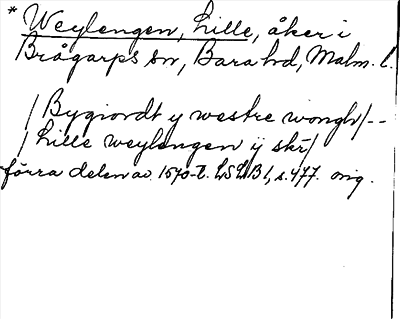 * Weylengen, Lille, åker i
Brågarps sn, Bara hd, Malm. l.
/Bygiordt y westre wongh/--
/Lille weylengen ÿ skr̄/
förra delen av 1570-t. LSLB 1, s. 477. orig.